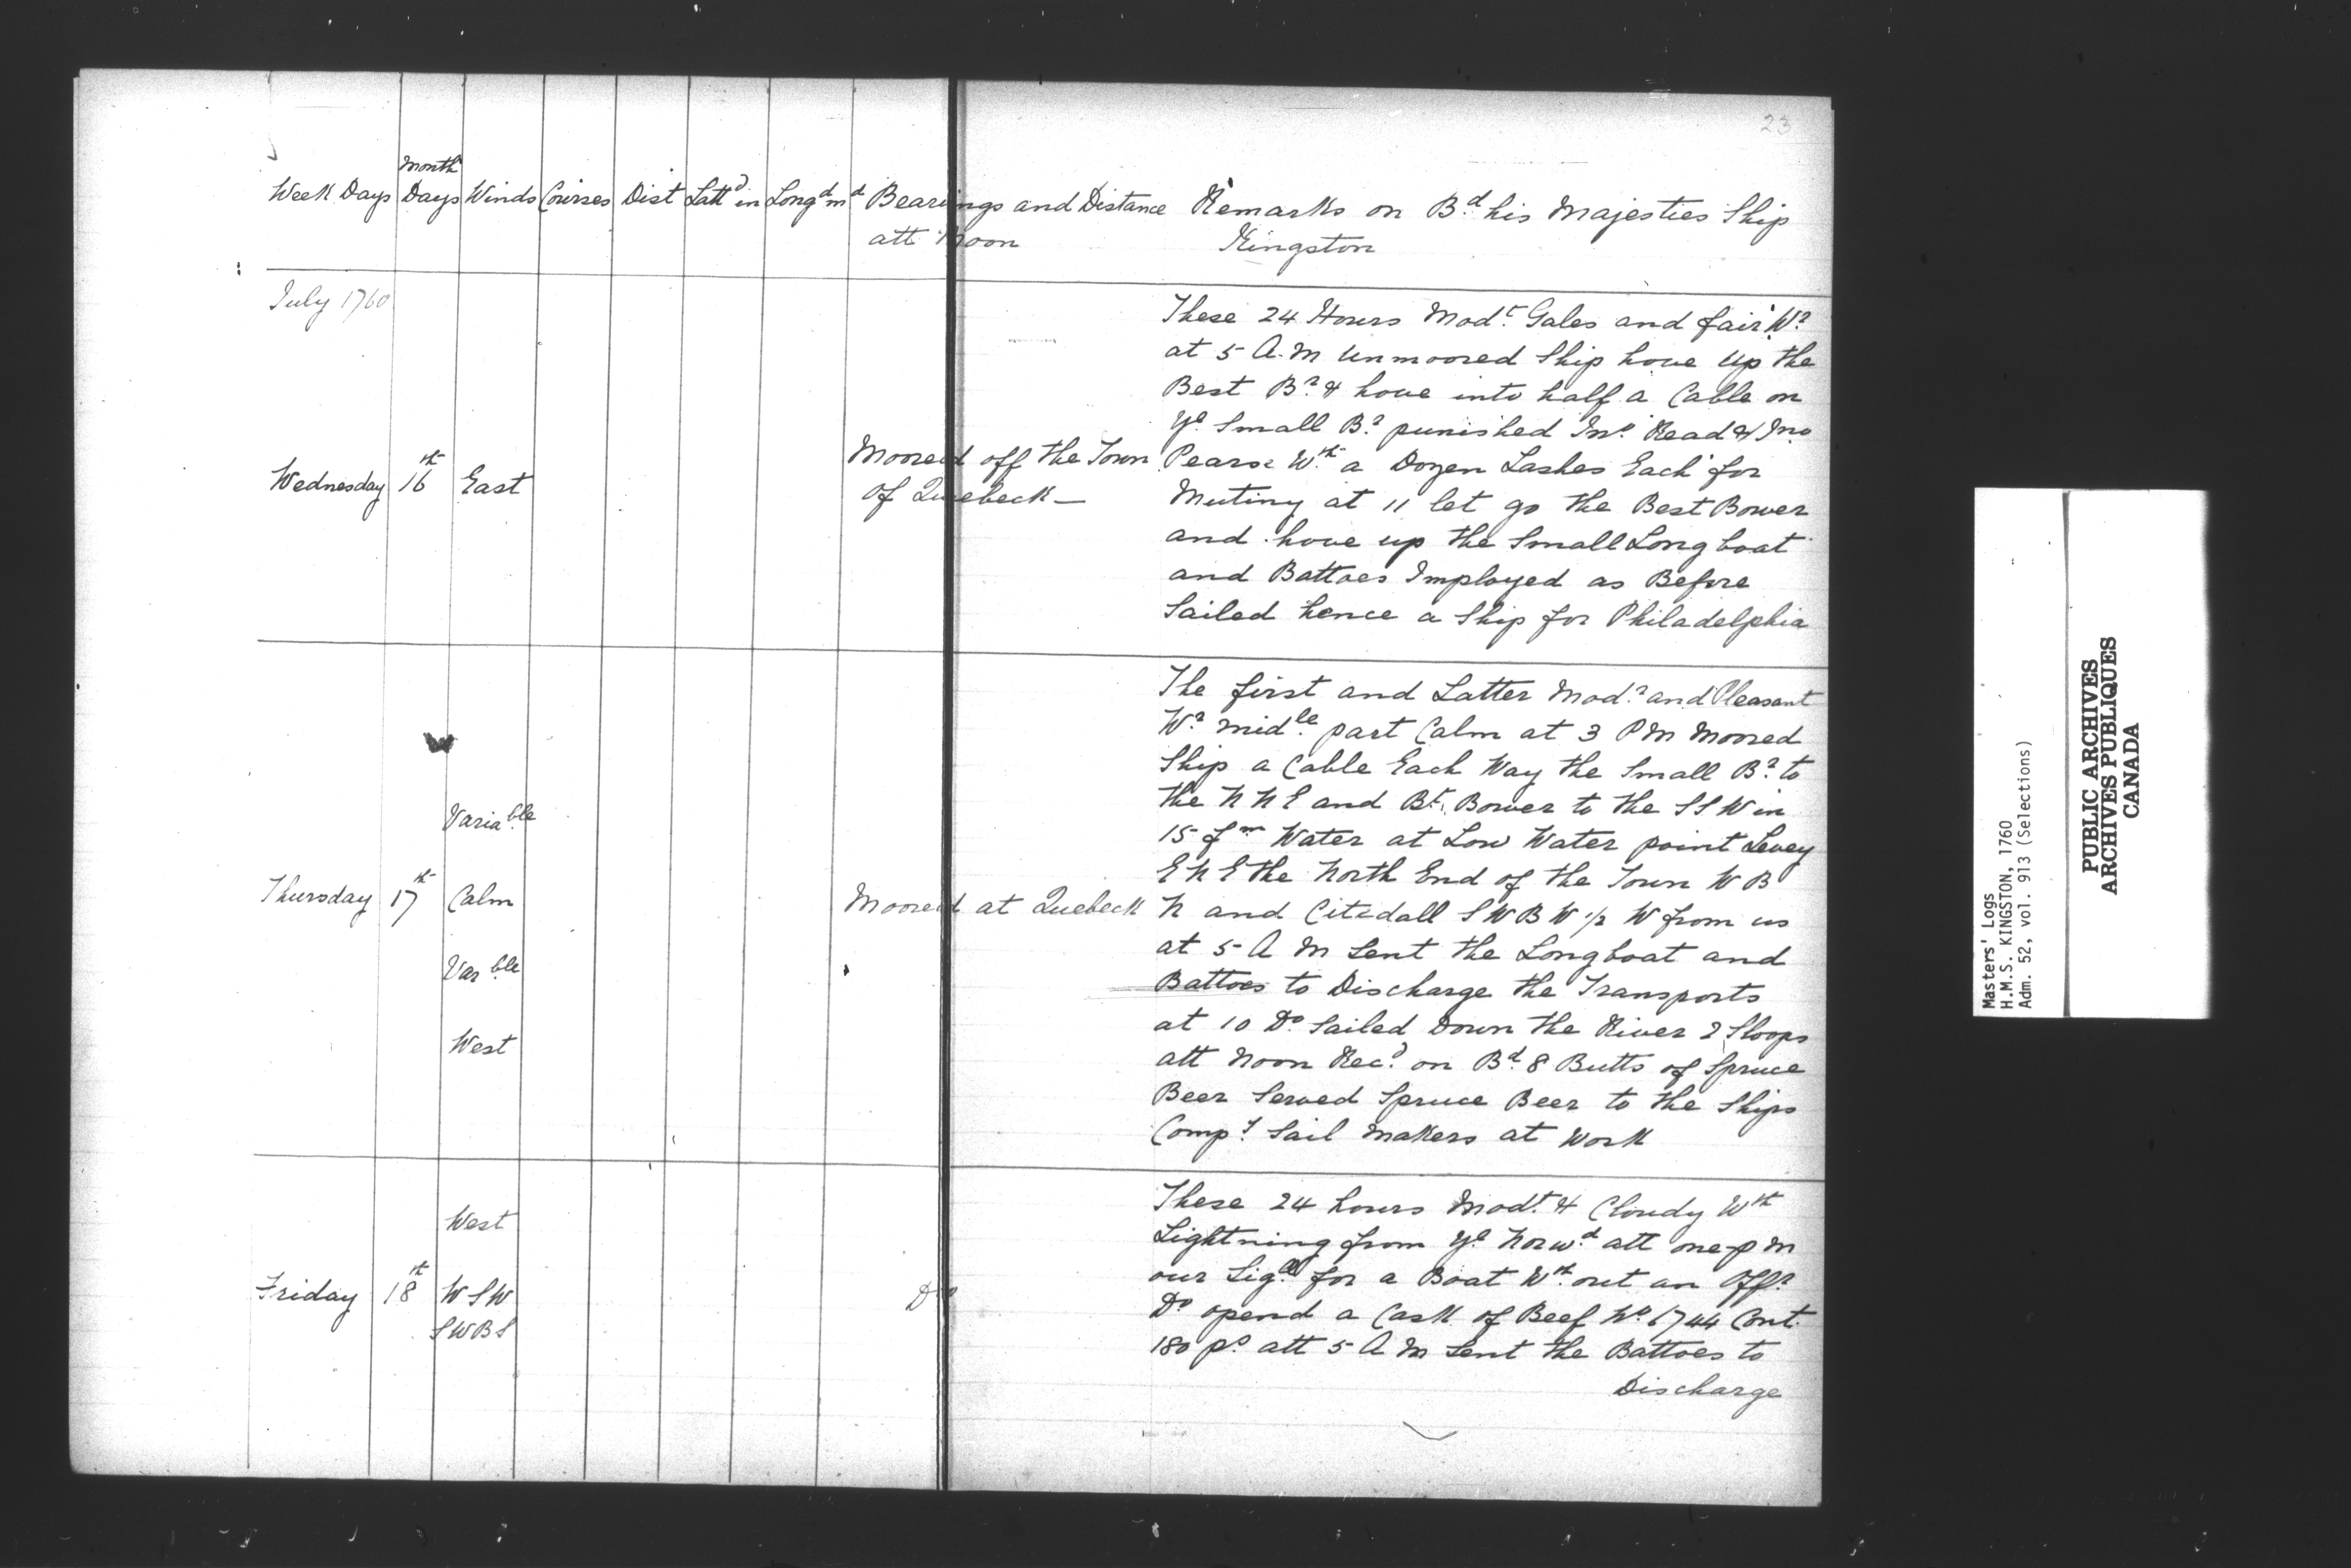 23
Week Days Month Days Winds Courses Dist Latt^d in Long^d in^d Bearings and Distance att Noon Remarks on B^d his Majesties Ship Kingston
July 1760
These 24 Hours Mod^t Gales and fair W^r
at 5 A.M Unmoored Ship hove Up the
Best B^r & hove into half a Cable on
y^e Small B^r punished Jn^o Read & Jno
Wednesday 16^th East Moored off the Town of Quebeck —
Pearse W^th a Dozen Lashes Each for
Mutiny at 11 let go the Best Bower
and hove up the Small Longboat
and Battoes Imployed as Before
Sailed hence a Ship for Philadelphia
The first and Latter Mod^r and Pleasant
W^r mid^le part Calm at 3 P M Moored
Ship a Cable Each Way the Small B^r to
the N N E and B^t Bower to the S S W in
15 f^m Water at Low Water point Levey
E N E the North End of the Town W B
Thursday 17^th Varia^ble Calm Var^ble West Moored at Quebeck
N and Citadall S W B W 1/2 W from us
at 5 A M Sent the Longboat and
Battoes to Discharge the Transports
at 10 D^o Sailed Down the River 2 Sloops
att Noon Rec^d on B^d 8 Butts of Spruce
Beer Served Spruce Beer to the Ships
Comp^y Sail Makers at Work
These 24 hours Mod^t & Cloudy W^th
Lightning from y^e Norw^d att one p M
our Sig^ll for a Boat W^th out an Off^r
Friday 18^th West W S W S W B S D^o
D^o opend a Cask of Beef N^o 1744 Cont
180 p^s att 5 A M Sent the Battoes to
Discharge
Masters' Logs
H.M.S. KINGSTON, 1760
Adm. 52, vol. 913 (Selections)
PUBLIC ARCHIVES
ARCHIVES PUBLIQUES
CANADA